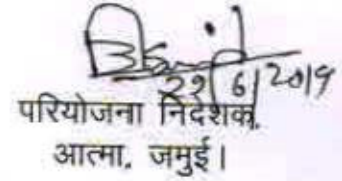 22/6/2019
परियोजना निदेशक,
आत्मा, जमुई।